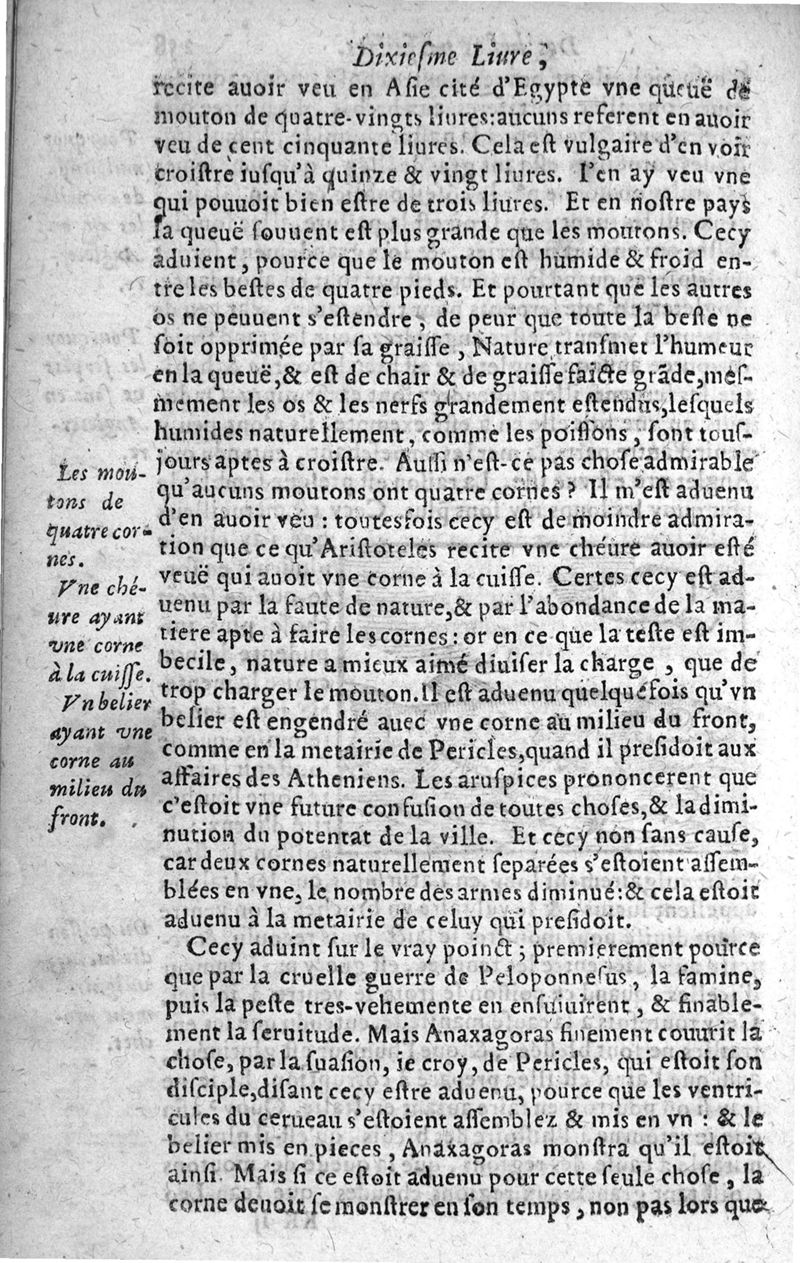 Dixiesme Liure,
recite auoir veu en Asie cité d'Egypte vne queuë de
mouton de quatre-vingts liures:aucuns referent en auoir
veu de cent cinquante liures. Cela est vulgaire d'en voir
croistre iusqu'à quinze & vingt liures. I'en ay veu vne
qui pouuoit bien estre de trois liures. Et en nostre pays
la queuë souuent est plus grande que les moutons. Cecy
aduient, pource que le mouton est humide & froid en-
tre les bestes de quatre pieds. Et pourtant que les autres
os ne peuuent s'estendre, de peur que toute la beste ne
soit opprimée par sa graisse, Nature transmet l'humeur
en la queuë,& est de chair & de graisse faicte grãde,mes-
mement les os & les nerfs grandement estendus,lesquels
humides naturellement, comme les poissons, sont tous-
jours aptes à croistre. Aussi n'est-ce pas chose admirable
qu'aucuns moutons ont quatre cornes? Il m'est aduenu
d'en auoir veu : toutesfois cecy est de moindre admira-
tion que ce qu'Aristoteles recite vne chéure auoir esté
veuë qui auoit vne corne à la cuisse. Certes cecy est ad-
uenu par la faute de nature,& par l'abondance de la ma-
tiere apte à faire les cornes: or en ce que la teste est im-
becile, nature a mieux aimé diuiser la charge, que de
trop charger le mouton. Il est aduenu quelquefois qu'vn
belier est engendré auec vne corne au milieu du front,
comme en la metairie de Pericles,quand il presidoit aux
affaires des Atheniens. Les aruspices prononcerent que
c'estoit vne future confusion de toutes choses,& la dimi-
nution du potentat de la ville. Et cecy non sans cause,
car deux cornes naturellement separées s'estoient assem-
blées en vne, le nombre des armes diminué:& cela estoit
aduenu à la metairie de celuy qui presidoit.
Cecy aduint sur le vray poinct; premierement pource
que par la cruelle guerre de Peloponnesus, la famine,
puis la peste tres-vehemente en ensuiuirent, & finable-
ment la seruitude. Mais Anaxagoras finement couurit la
chose, par la suasion, ie croy, de Pericles, qui estoit son
disciple,disant cecy estre aduenu, pource que les ventri-
cules du cerueau s'estoient assemblez & mis en vn : & le
belier mis en pieces, Anaxagoras monstra qu'il estoit
ainsi. Mais si ce estoit aduenu pour cette seule chose, la
corne deuoit se monstrer en son temps, non pas lors que
Les mou-
tons de
quatre cor-
nes.
Vne ché-
ure ayant
vne corne
à la cuisse.
Vn belier
ayant vne
corne au
milieu du
front.